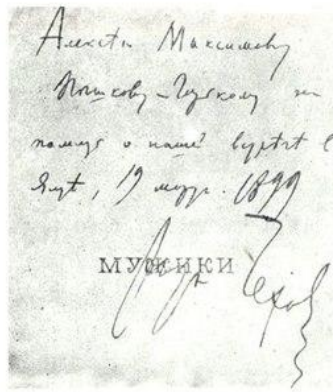 Алексѣю Максимовичу
Пѣшкову-Горькому на
память о нашей встрѣчѣ в
Ялтѣ, 19 март. 1899
МУЖИКИ
Антон Чехов